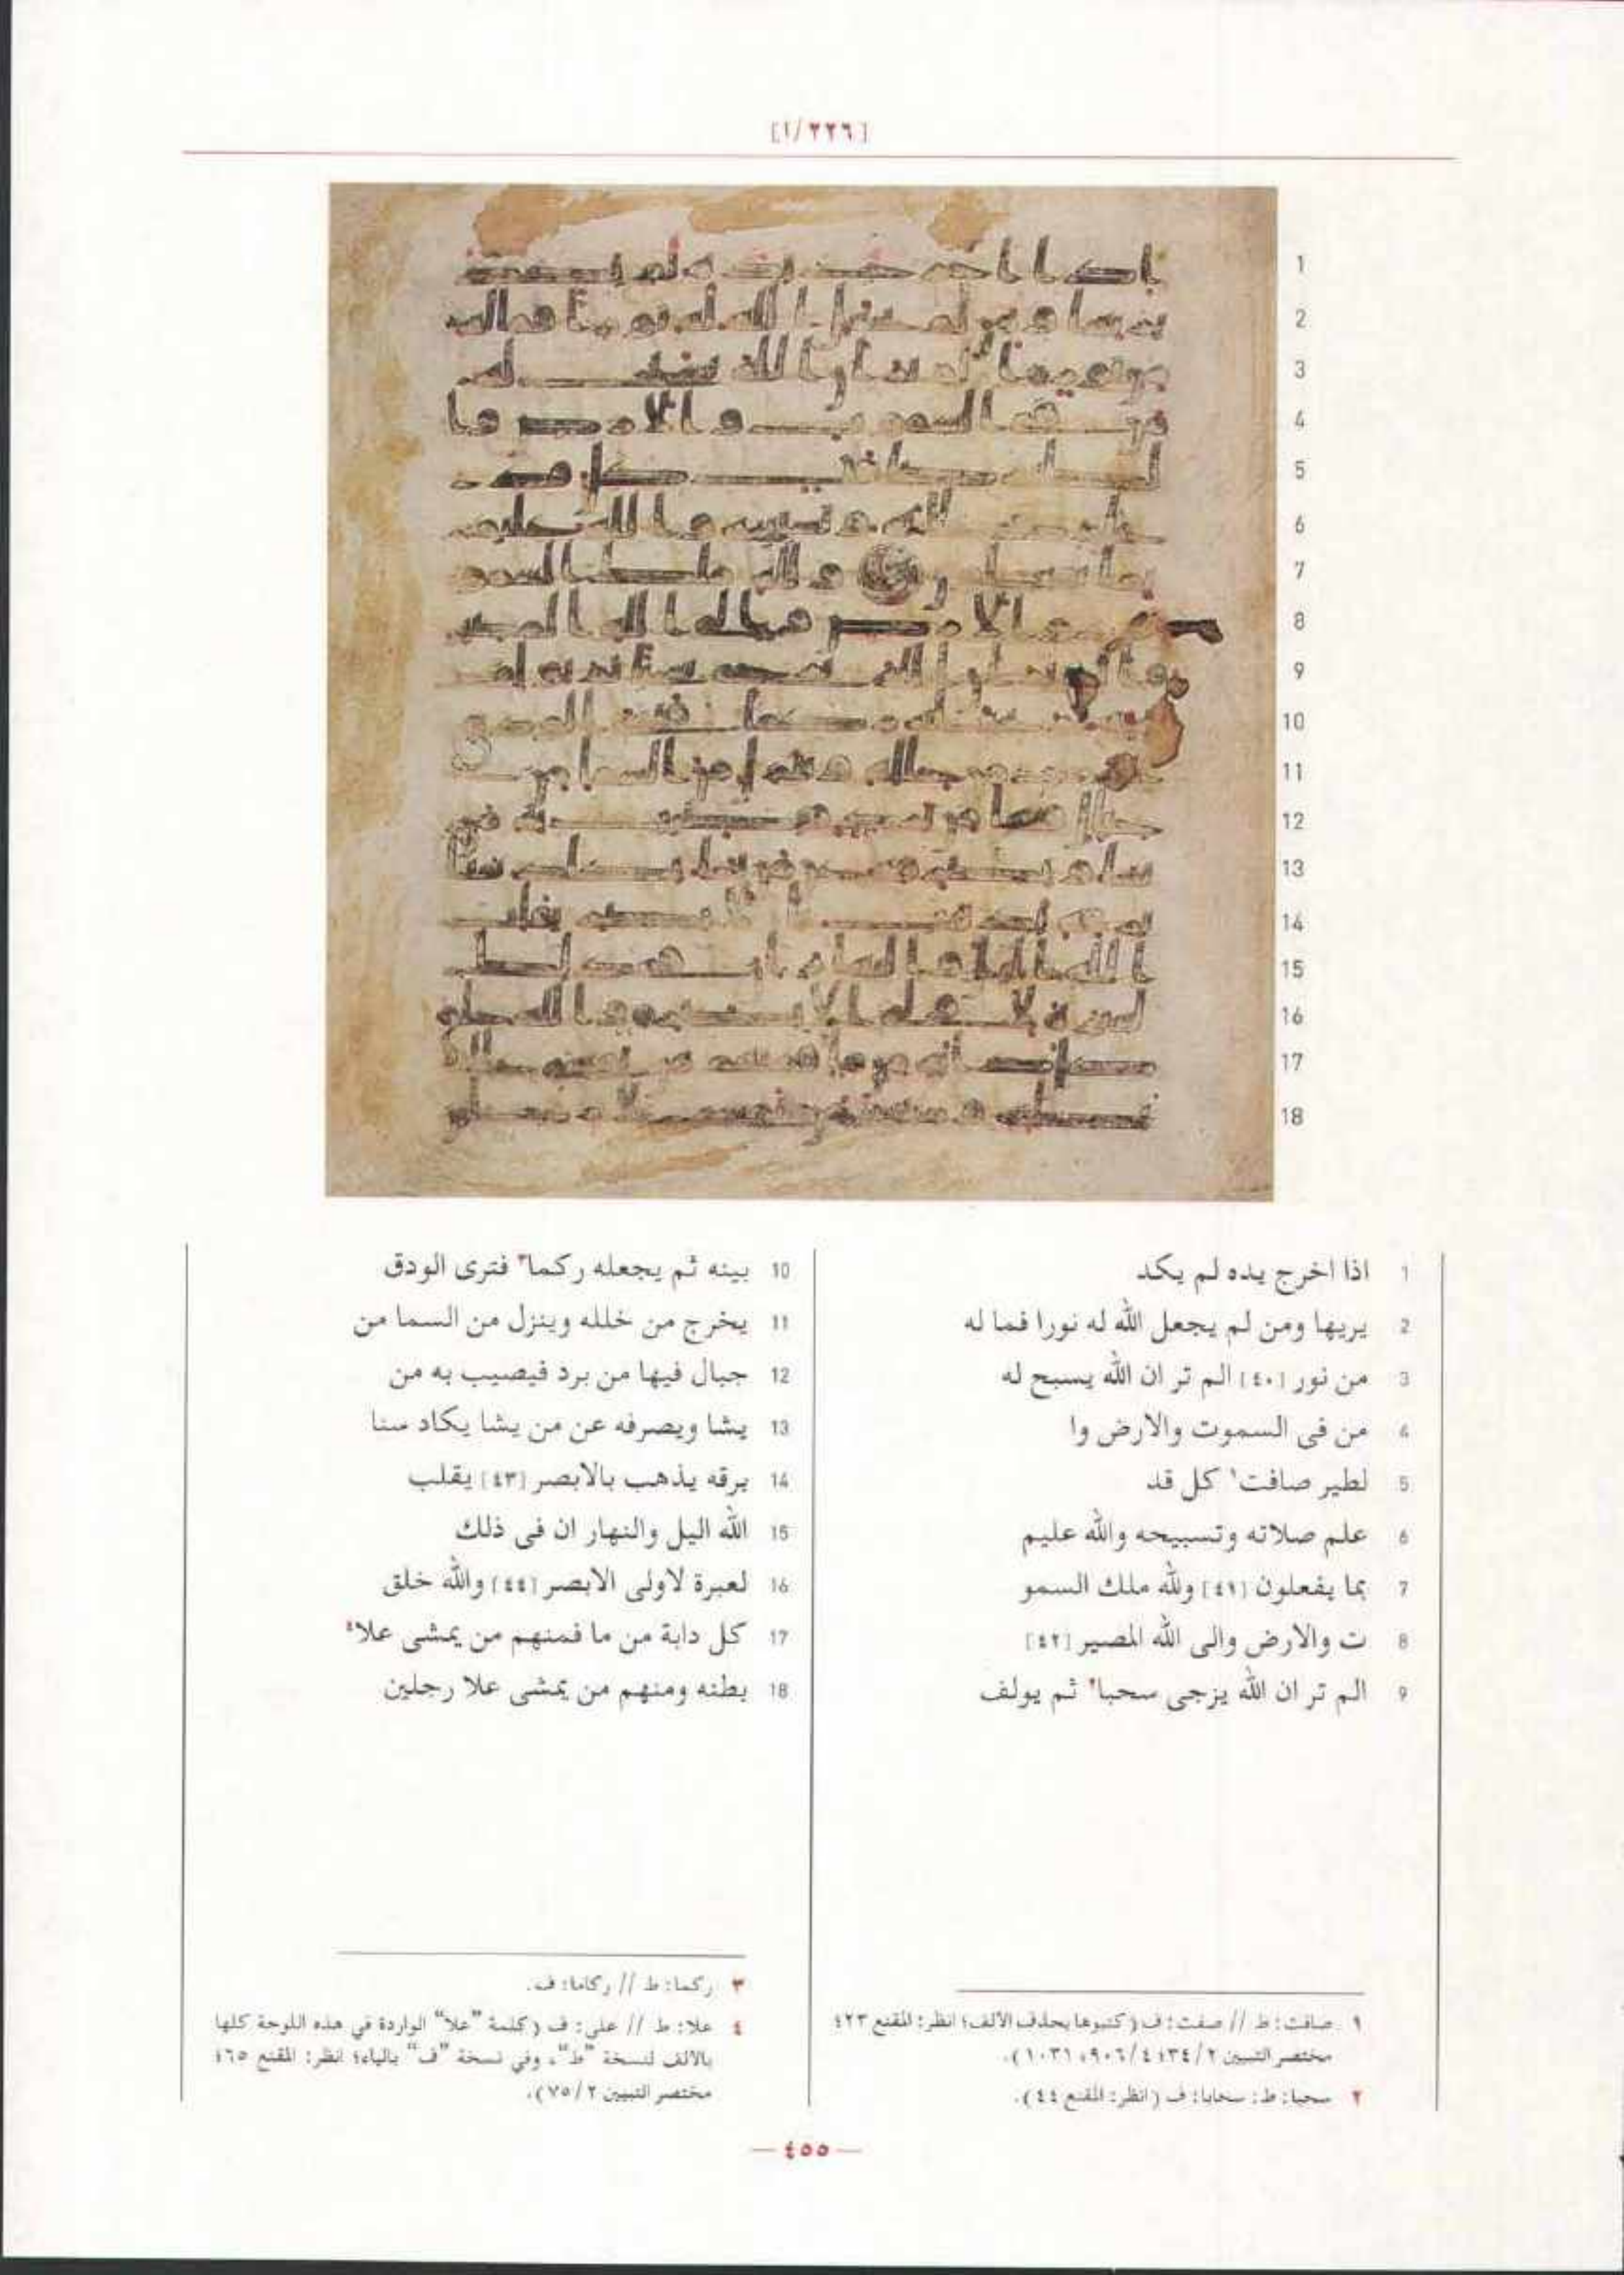 [٢٢٦/١]
1
2
3
4
5
6
7
8
9
10
11
12
13
14
15
16
17
18
1 اذا اخرج يده لم يكد
2 يريها ومن لم يجعل الله له نورا فما له
3 من نور [٤٠] الم تر ان الله يسبح له
4 من فى السموت والارض وا
5 لطير صافت١ كل قد
6 علم صلاته وتسبيحه والله عليم
7 بما يفعلون [٤١] ولله ملك السمو
8 ت والارض والى الله المصير [٤٢]
9 الم تر ان الله يزجى سحبا٢ ثم يولف
10 بينه ثم يجعله ركما٣ فترى الودق
11 يخرج من خلله وينزل من السما من
12 جبال فيها من برد فيصيب به من
13 يشا ويصرفه عن من يشا يكاد سنا
14 برقه يذهب بالابصر [٤٣] يقلب
15 الله اليل والنهار ان فى ذلك
16 لعبرة لاولى الابصر [٤٤] والله خلق
17 كل دابة من ما فمنهم من يمشى علا٤
18 بطنه ومنهم من يمشى علا رجلين
١ صافت: ط // صفت: ف (كتبوها بحذف الالف؛ انظر: المقنع ٤٢٣؛
مختصر التبيين ٣٤/٢؛ ٩٠٦/٤، ١٠٣١).
٢ سحبا: ط: سحابا: ف (انظر: المقنع ٤٤).
٣ ركما: ط // ركاما: ف.
٤ علا: ط // على: ف (كلمة "علا" الواردة في هذه اللوحة كلها
بالالف لنسخة "ط"، وفي نسخة "ف" بالياء؛ انظر: المقنع ٤٦٥؛
مختصر التبيين ٧٥/٢).
— ٤٥٥ —